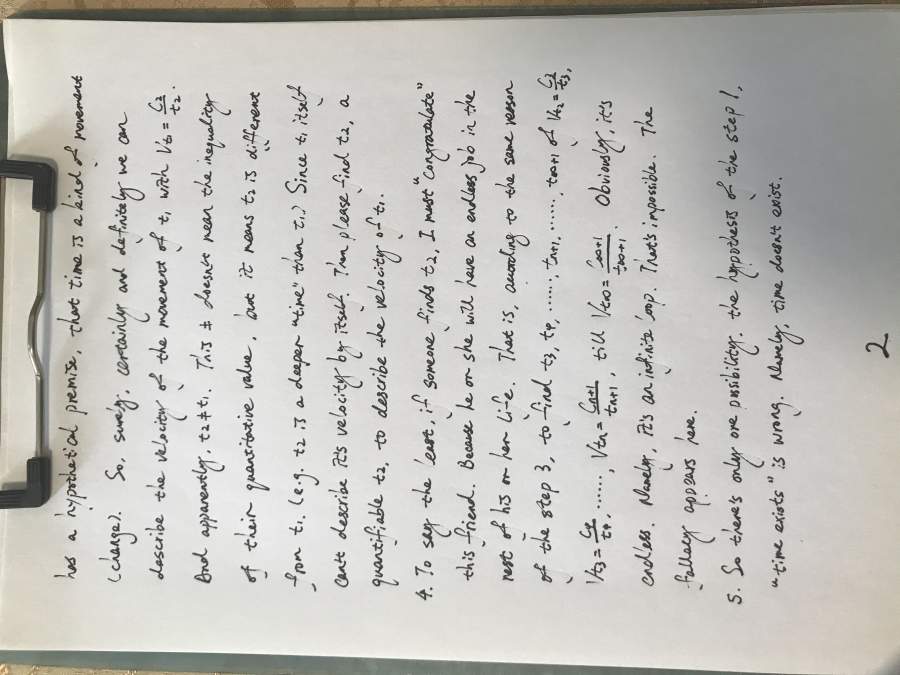 has a hypothetical premise, that time is a kind of movement
(change). So, surely, certainly and definitely we can
describe the velocity of the movement of t₁ with Vt₁ = C₂/t₂.
And apparently, t₂ ≠ t₁. This ≠ doesn't mean the inequality
of their quantitative value, but it means t₂ is different
from t₁ (e.g. t₂ is a deeper "time" than t₁.) Since t₁ itself
can't describe it's velocity by itself. Then please find t₂, a
quantifiable t₂, to describe the velocity of t₁.
4. To say the least, if someone finds t₂, I must "congratulate"
this friend. Because he or she will have an endless job in the
rest of his or her life. That is, according to the same reason
of the step 3, to find t₃, t₄, ......, tₙ₊₁, ......, t∞₊₁ of Vt₂ = C₃/t₃,
Vt₃ = C₄/t₄, ......, Vtₙ = Cₙ₊₁/tₙ₊₁, till Vt∞ = C∞₊₁/t∞₊₁. Obviously, it's
endless. Namely, it's an infinite loop. That's impossible. The
fallacy appears here.
5. So there's only one possibility. the hypothesis of the step 1,
"time exists" is wrong. Namely, time doesn't exist.
2